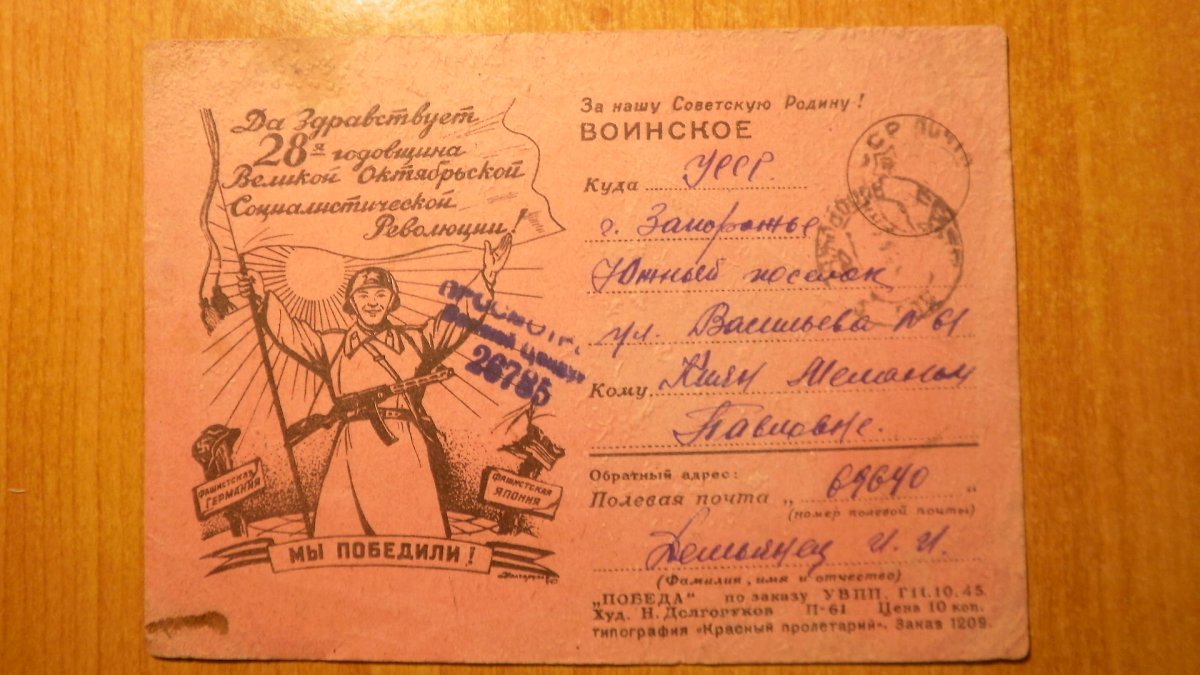 Да Здравствует
28я годовщина
Великой Октябрьской
Социалистической
Революции!
ФАШИСТСКАЯ
ГЕРМАНИЯ
ФАШИСТСКАЯ
ЯПОНИЯ
МЫ ПОБЕДИЛИ!
ПРОСМОТР
Военной Цензур
26785
За нашу Советскую Родину!
ВОИНСКОЕ
Куда УССР.
г. Запорожье
Южный поселок
ул. Васильева № 61
Кому Киян Меланьи
Павловне.
Обратный адрес:
Полевая почта „69640“
(номер полевой почты)
Демьянец И. И.
(Фамилия, имя и отчество)
„ПОБЕДА“ по заказу УВПП. 10.45.
Худ. Н. Долгоруков П-61 Цена 10 коп.
типография «Красный пролетарий». Заказ 1209.